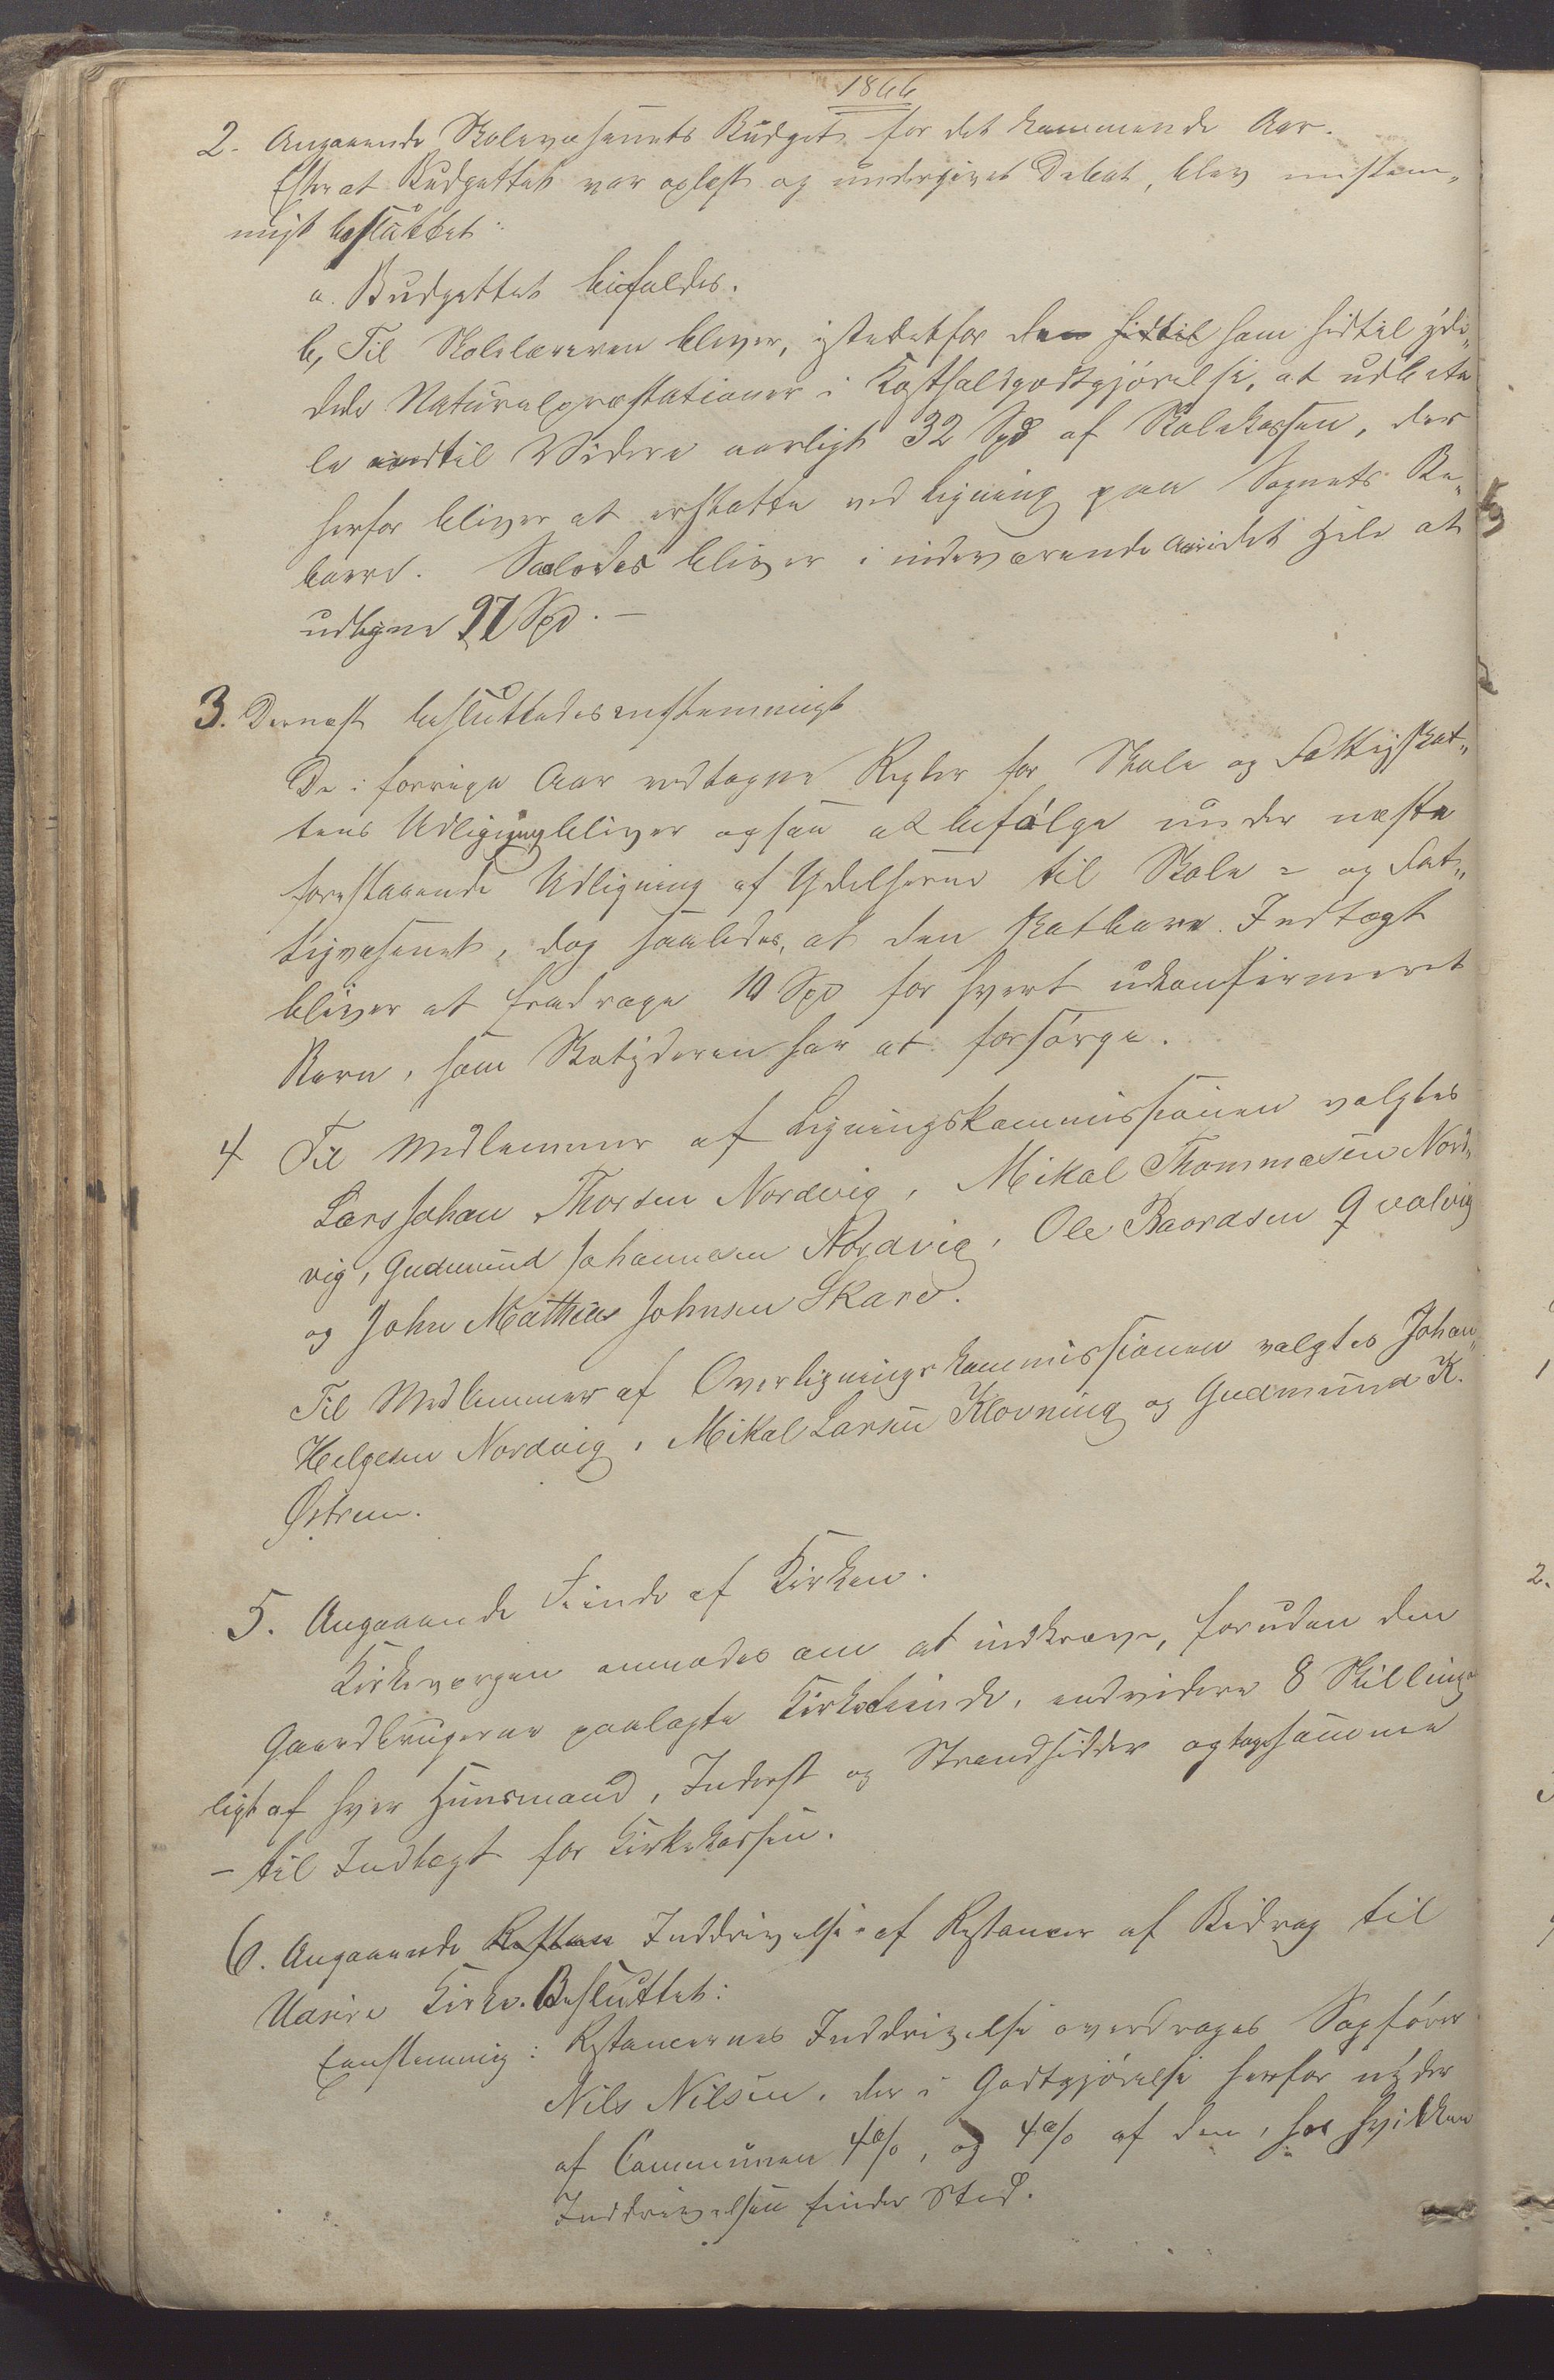 1866
2. Angaaende Skolevæsenets Budget for det kommende Aar.
Efterat Budgettet var oplæst og undergivet Debat, blev enstem„
migt besluttet:
a. Budgettet bifaldes.
b, Til Skolelæreren bliver, istedetfor den hidtil som hidtil ydi„
dede Naturalpræstationer i Kostholdgodtgjörelse, at udbeta
le indtil Videre aarligt 32 Spd af Skolekassen, der
herfor bliver at erstatte ved Ligning paa Sognets Be„
boere. Saaledes bliver i indeværende Aar i det Hele at
udligne 97 Spd. —
3. Dernæst besluttedes enstemmigt
De i forrige Aar vedtagne Regler for Skole og Fattigskat„
tens Udligning bliver ogsaa at befölge under næste
forestaaende Udligning af Ydelserne til Skole- og Fat„
tigvæsenet, dog saaledes, at den skatbare Indtægt
bliver at fradrage 10 Spd for hvert ukonfirmeret
Barn, som Skatyderen har at forsörge.
4 Til Medlemmer af Ligningskommissionen valgtes
Lars Johan Thorsen Nordvig, Mikal Thommasen Nord„
vig, Gudmund Johannesen Nordvig, Ole Baardsen Qvalvig
og John Mathias Johnsen Skare.
Til Medlemmer af Overligningskommissionen valgtes Johan„
Helgesen Nordvig, Mikal Larsen Klovning og Gudmund K.
Østrem.
5. Angaaende Tiende af Kirken.
Kirkevergen anmodes om at indkræve, foruden den
Gaardbrugerne paalagte Kirketiende, endvidere 8 Skilling
ligt af hver Huusmand, Inderst og Strandsidder og tage samme
— til Indtægt for Kirkekassen.
6. Angaaende Restan Inddrivelse af Restancer af Bidrag til
Udsire Kirke. Besluttet:
Eenstemmig: Restancernes Inddrivelse overdrages Sagförer
Nils Nilsen, der i Godtgjörelse herfor nyder
af Communen 4%, og 4% af den, hos hvilken
Inddrivelsen finder Sted.